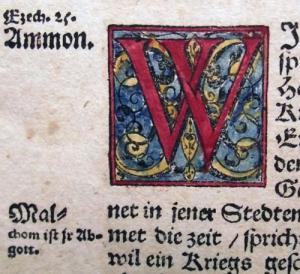 Ezech. 25.
Ammon.
W
net in jener Stedten
met die zeit / sprich
wil ein Kriegs gesc
Mal-
chom ist jr Ab-
gott.